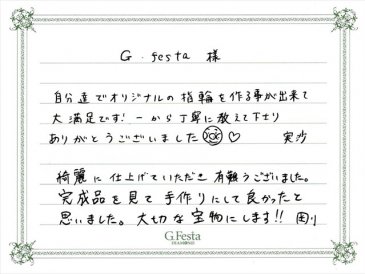 G.festa 様
自分達でオリジナルの指輪を作る事が出来て
大満足です!一から丁寧に教えて下さり
ありがとうございました♡ 実沙
綺麗に仕上げていただき有難うございました。
完成品を見て手作りにして良かったと
思いました。大切な宝物にします!! 剛
G.Festa
DIAMOND